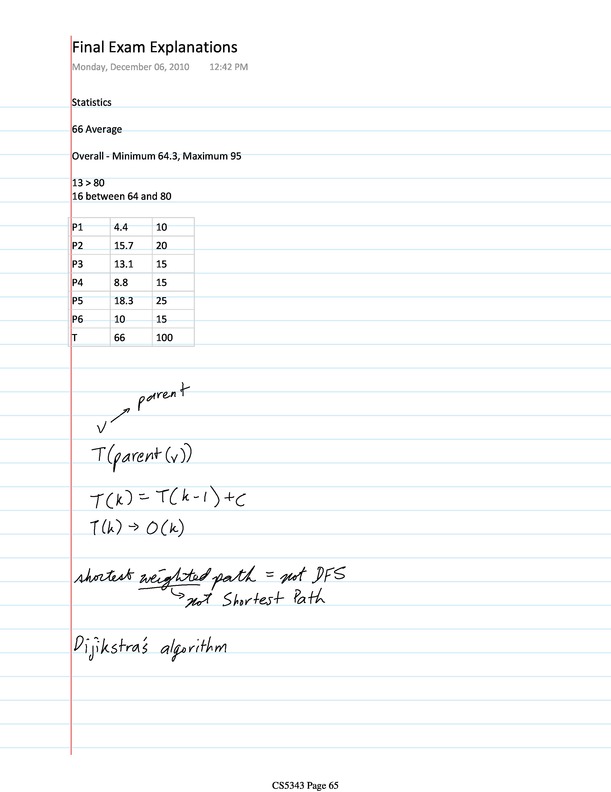 Final Exam Explanations
Monday, December 06, 2010 12:42 PM
Statistics
66 Average
Overall - Minimum 64.3, Maximum 95
13 > 80
16 between 64 and 80
P1 4.4 10
P2 15.7 20
P3 13.1 15
P4 8.8 15
P5 18.3 25
P6 10 15
T 66 100
parent
v
T(parent(v))
T(k) = T(k-1) + C
T(k) → O(k)
shortest weighted path = not DFS
not Shortest Path
Dijikstra's algorithm
CS5343 Page 65